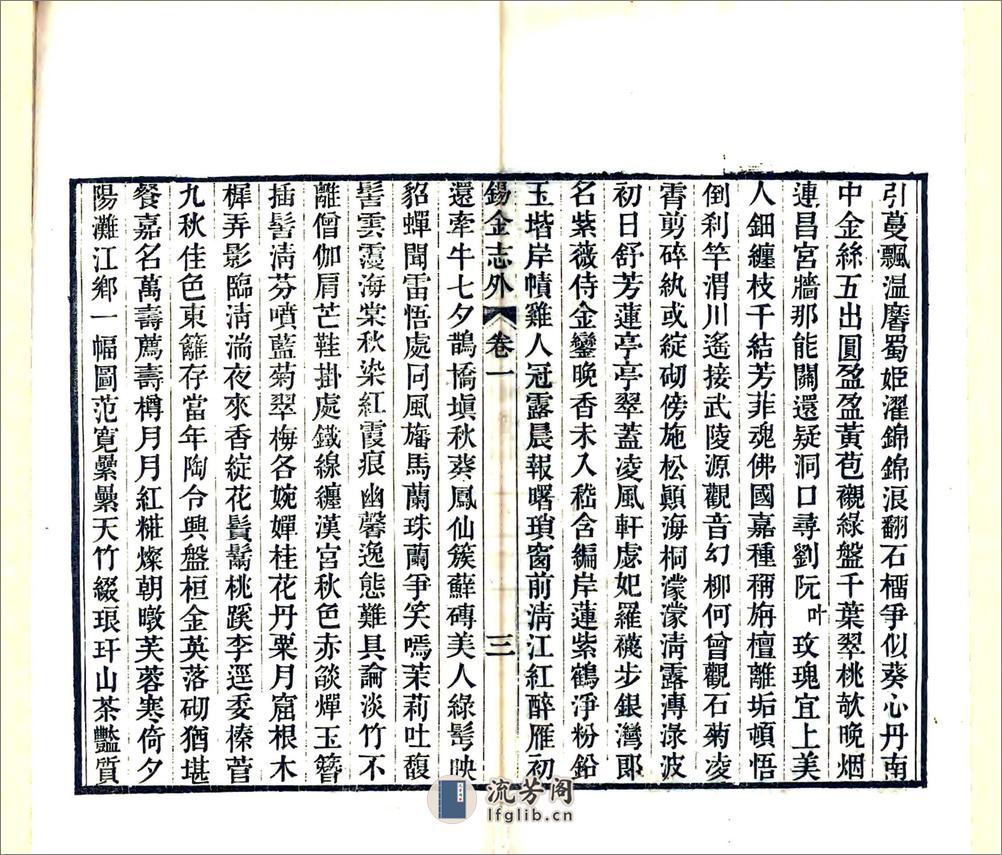 引蔓飄温麐蜀姬濯錦錦浪翻石橊爭似葵心丹南
中金絲五出圓盈盈黃苞襯綠盤千葉翠桃欹晚烟
連昌宮牆那能關還疑洞口尋劉阮叶玫瑰宜上美
人鈿纏枝千結芳菲魂佛國嘉種稱旃檀離垢頓悟
倒刹竿渭川遙接武陵源觀音幻柳何曾觀石菊凌
霄剪碎紈或綻砌傍施松顚海桐濛濛淸露漙淥波
初日舒芳蓮亭亭翠蓋凌風軒處妃羅襪步銀灣郞
名紫薇侍金鑾晚香未入嵇含編岸蓮紫鶴淨粉鉛
玉堦岸幘雞人冠露晨報曙瑣窗前淸江紅醉雁初
錫金志外 卷一 三
還牽牛七夕鵲橋塡秋葵鳳仙簇蘚磚美人綠髩映
貂蟬聞雷悟處同風旛馬蘭珠蘭爭笑嘕茉莉吐馥
髻雲霞海棠秋染紅霞痕幽馨逸態難具論淡竹不
離僧伽肩芒鞋掛處鐵線纏漢宮秋色赤燄燀玉簪
插髻淸芬噴藍菊翠梅各婉嬋桂花丹粟月窟根木
樨弄影臨淸湍夜來香綻花鬟鬌桃蹊李逕委榛菅
九秋佳色東籬存當年陶令興盤桓金英落砌猶堪
餐嘉名萬壽薦壽樽月月紅糚燦朝暾芙蓉寒倚夕
陽灘江鄉一幅圖范寬纍纍天竹綴琅玕山茶豔質
流芳阁
lfglib.cn